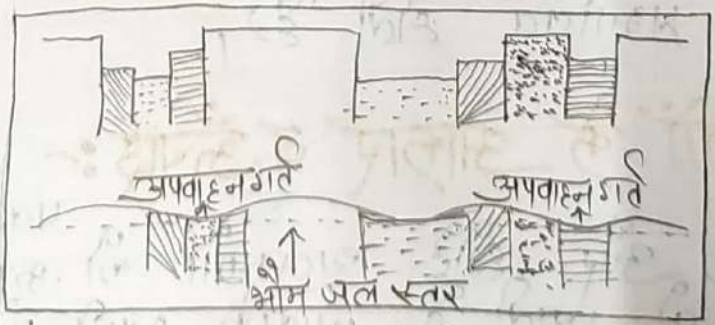 अपवाहन गर्त
अपवाहन गर्त
भौम जल स्तर